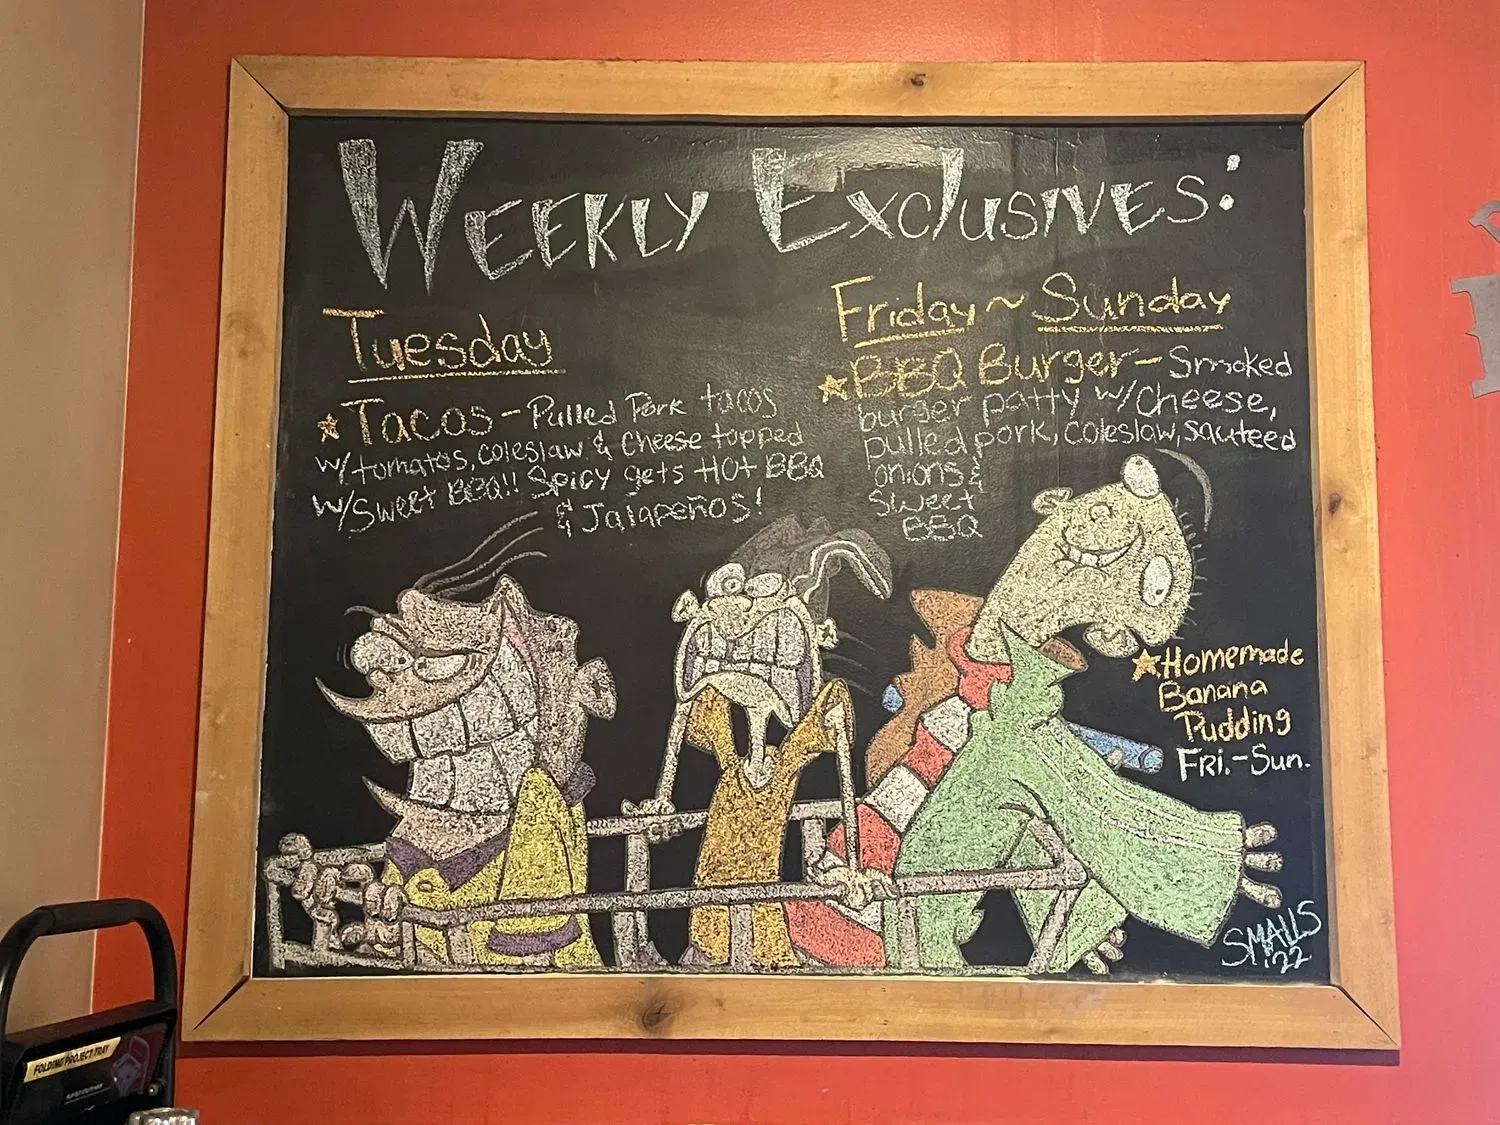 WEEKLY EXCLUSIVES:
Tuesday
Tacos - Pulled Pork tacos
w/tomatos, coleslaw & Cheese topped
w/Sweet BBQ!! Spicy gets HOt BBQ
& Jalapeños!
Friday ~ Sunday
BBQ Burger - Smoked
burger patty w/Cheese,
pulled pork, coleslaw, sauteed
onions &
Sweet
BBQ
Homemade
Banana
Pudding
FRI.-Sun.
SMALLS
'22
FOLDING PROJECT TRAY